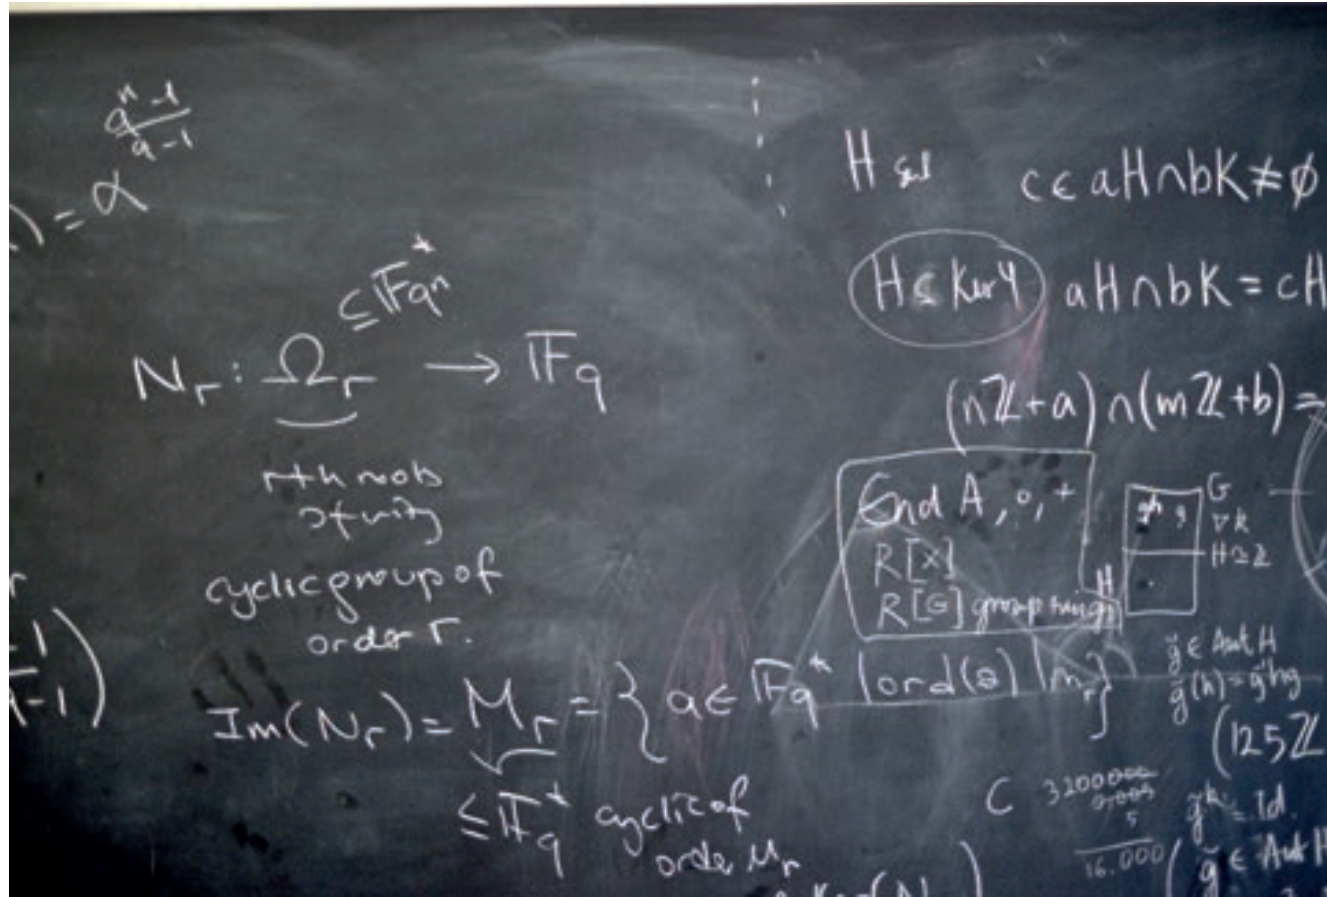 ) = α^{\frac{q^n-1}{q-1}}
N_r : Ω_r ⊆ 𝔽_{q^n}^* → 𝔽_q
rth roots
of unity
cyclic group of
order r.
Im(N_r) = M_r = { a ∈ 𝔽_q^* | ord(a) | m_r }
≤ 𝔽_q^* cyclic of
order M_r
-1
-1 )
H
c ∈ aH ∩ bK ≠ ∅
H ≤ Ker φ
aH ∩ bK = cH
(nℤ+a) ∩ (mℤ+b) =
End A, ∘, +
R[X]
R[G] group ring
gh g
G
∇ K
H ≅ ℤ
H
ğ ∈ Aut H
ğ(h) = g^{-1}hg
(125ℤ
C 3200000
0,005
5
16.000
ğ^k = id.
( ğ ∈ Aut H
Ker(N